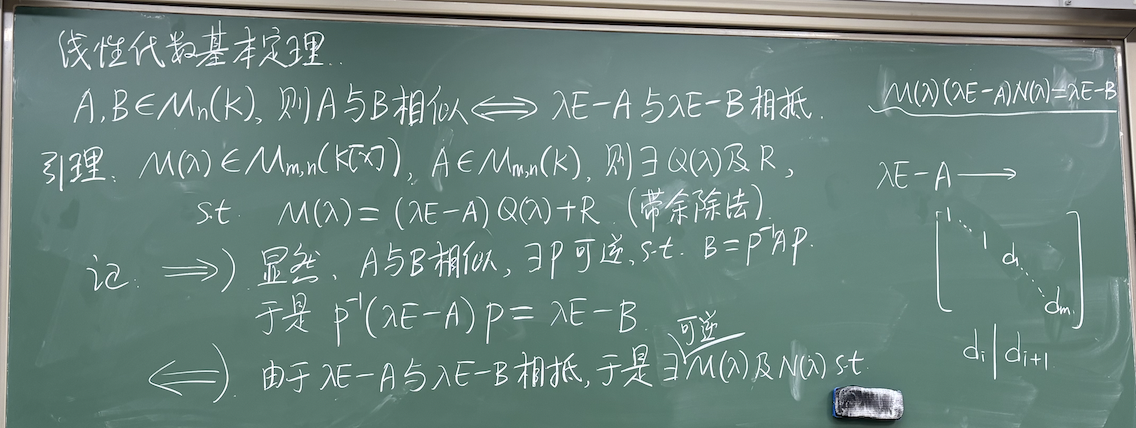 线性代数基本定理.
A,B∈Mn(K), 则A与B相似⟺λE-A与λE-B相抵.
引理. M(λ)∈Mm,n(K[x]), A∈Mm,n(K), 则∃Q(λ)及R,
s.t. M(λ)=(λE-A)Q(λ)+R. (带余除法)
记. ⟹) 显然, A与B相似, ∃P可逆, s.t. B=P⁻¹AP.
于是 P⁻¹(λE-A)P=λE-B.
⟸) 由于λE-A与λE-B相抵, 于是∃可逆M(λ)及N(λ) s.t.
M(λ)(λE-A)N(λ)=λE-B
λE-A⟶
[1 ⋱ 1 d₁ ⋱ dm]
di|di+1